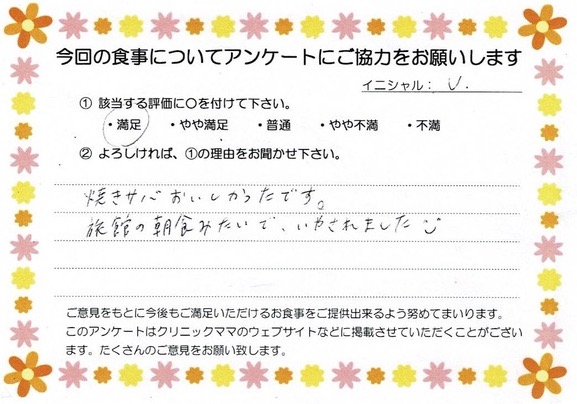 今回の食事についてアンケートにご協力をお願いします
イニシャル： U.
① 該当する評価に〇を付けて下さい。
・満足 ・やや満足 ・普通 ・やや不満 ・不満
② よろしければ、①の理由をお聞かせ下さい。
焼きサバおいしかったです。
旅館の朝食みたいで、いやされました
ご意見をもとに今後もご満足いただけるお食事をご提供出来るよう努めてまいります。
このアンケートはクリニックママのウェブサイトなどに掲載させていただくことがござい
ます。たくさんのご意見をお願い致します。